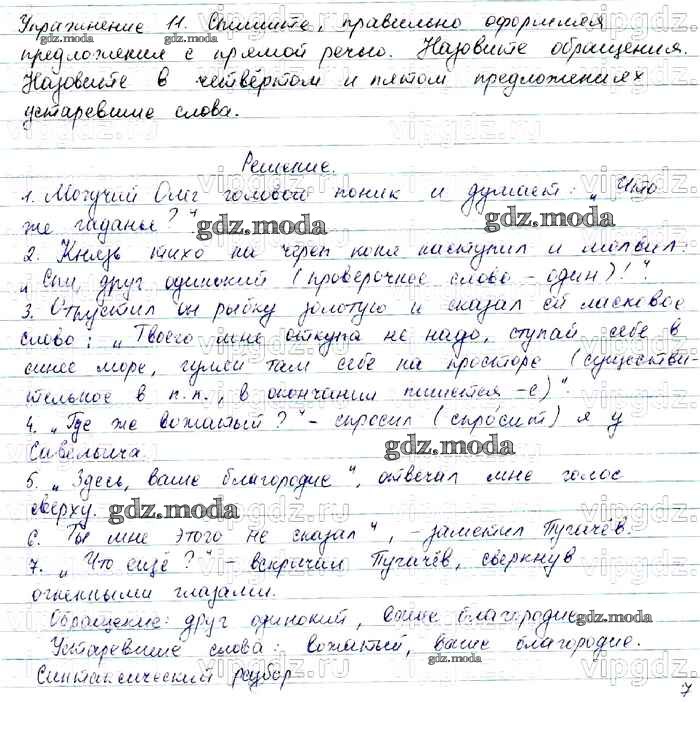 Упражнение 11. Спишите, правильно оформляя
предложения с прямой речью. Назовите обращения.
Назовите в четвёртом и пятом предложениях
устаревшие слова.
Решение.
1. Могучий Олег головою поник и думает: „Что
же гаданье?"
2. Князь тихо на череп коня наступил и молвил:
„Спи, друг одинокий (проверочное слово - один)!".
3. Отпустил он рыбку золотую и сказал ей ласковое
слово: „Твоего мне откупа не надо, ступай себе в
синее море, гуляй там себе на просторе (существи-
тельное в п.п., в окончании пишется -е)".
4. „Где же вожатый?" - спросил (спро́сит) я у
Савельича.
5. „Здесь, ваше благородие", отвечал мне голос
сверху.
6. Ты мне этого не сказал", - заметил Пугачёв.
7. „Что ещё?" - вскричал Пугачёв, сверкнув
огненными глазами.
Обращение: друг одинокий, ваше благородие
Устаревшие слова: вожатый, ваше благородие.
Синтаксический разбор
7
gdz.moda
gdz.moda
gdz.moda
gdz.moda
gdz.moda
gdz.moda
gdz.moda
gdz.moda
gdz.moda
vipgdz.ru